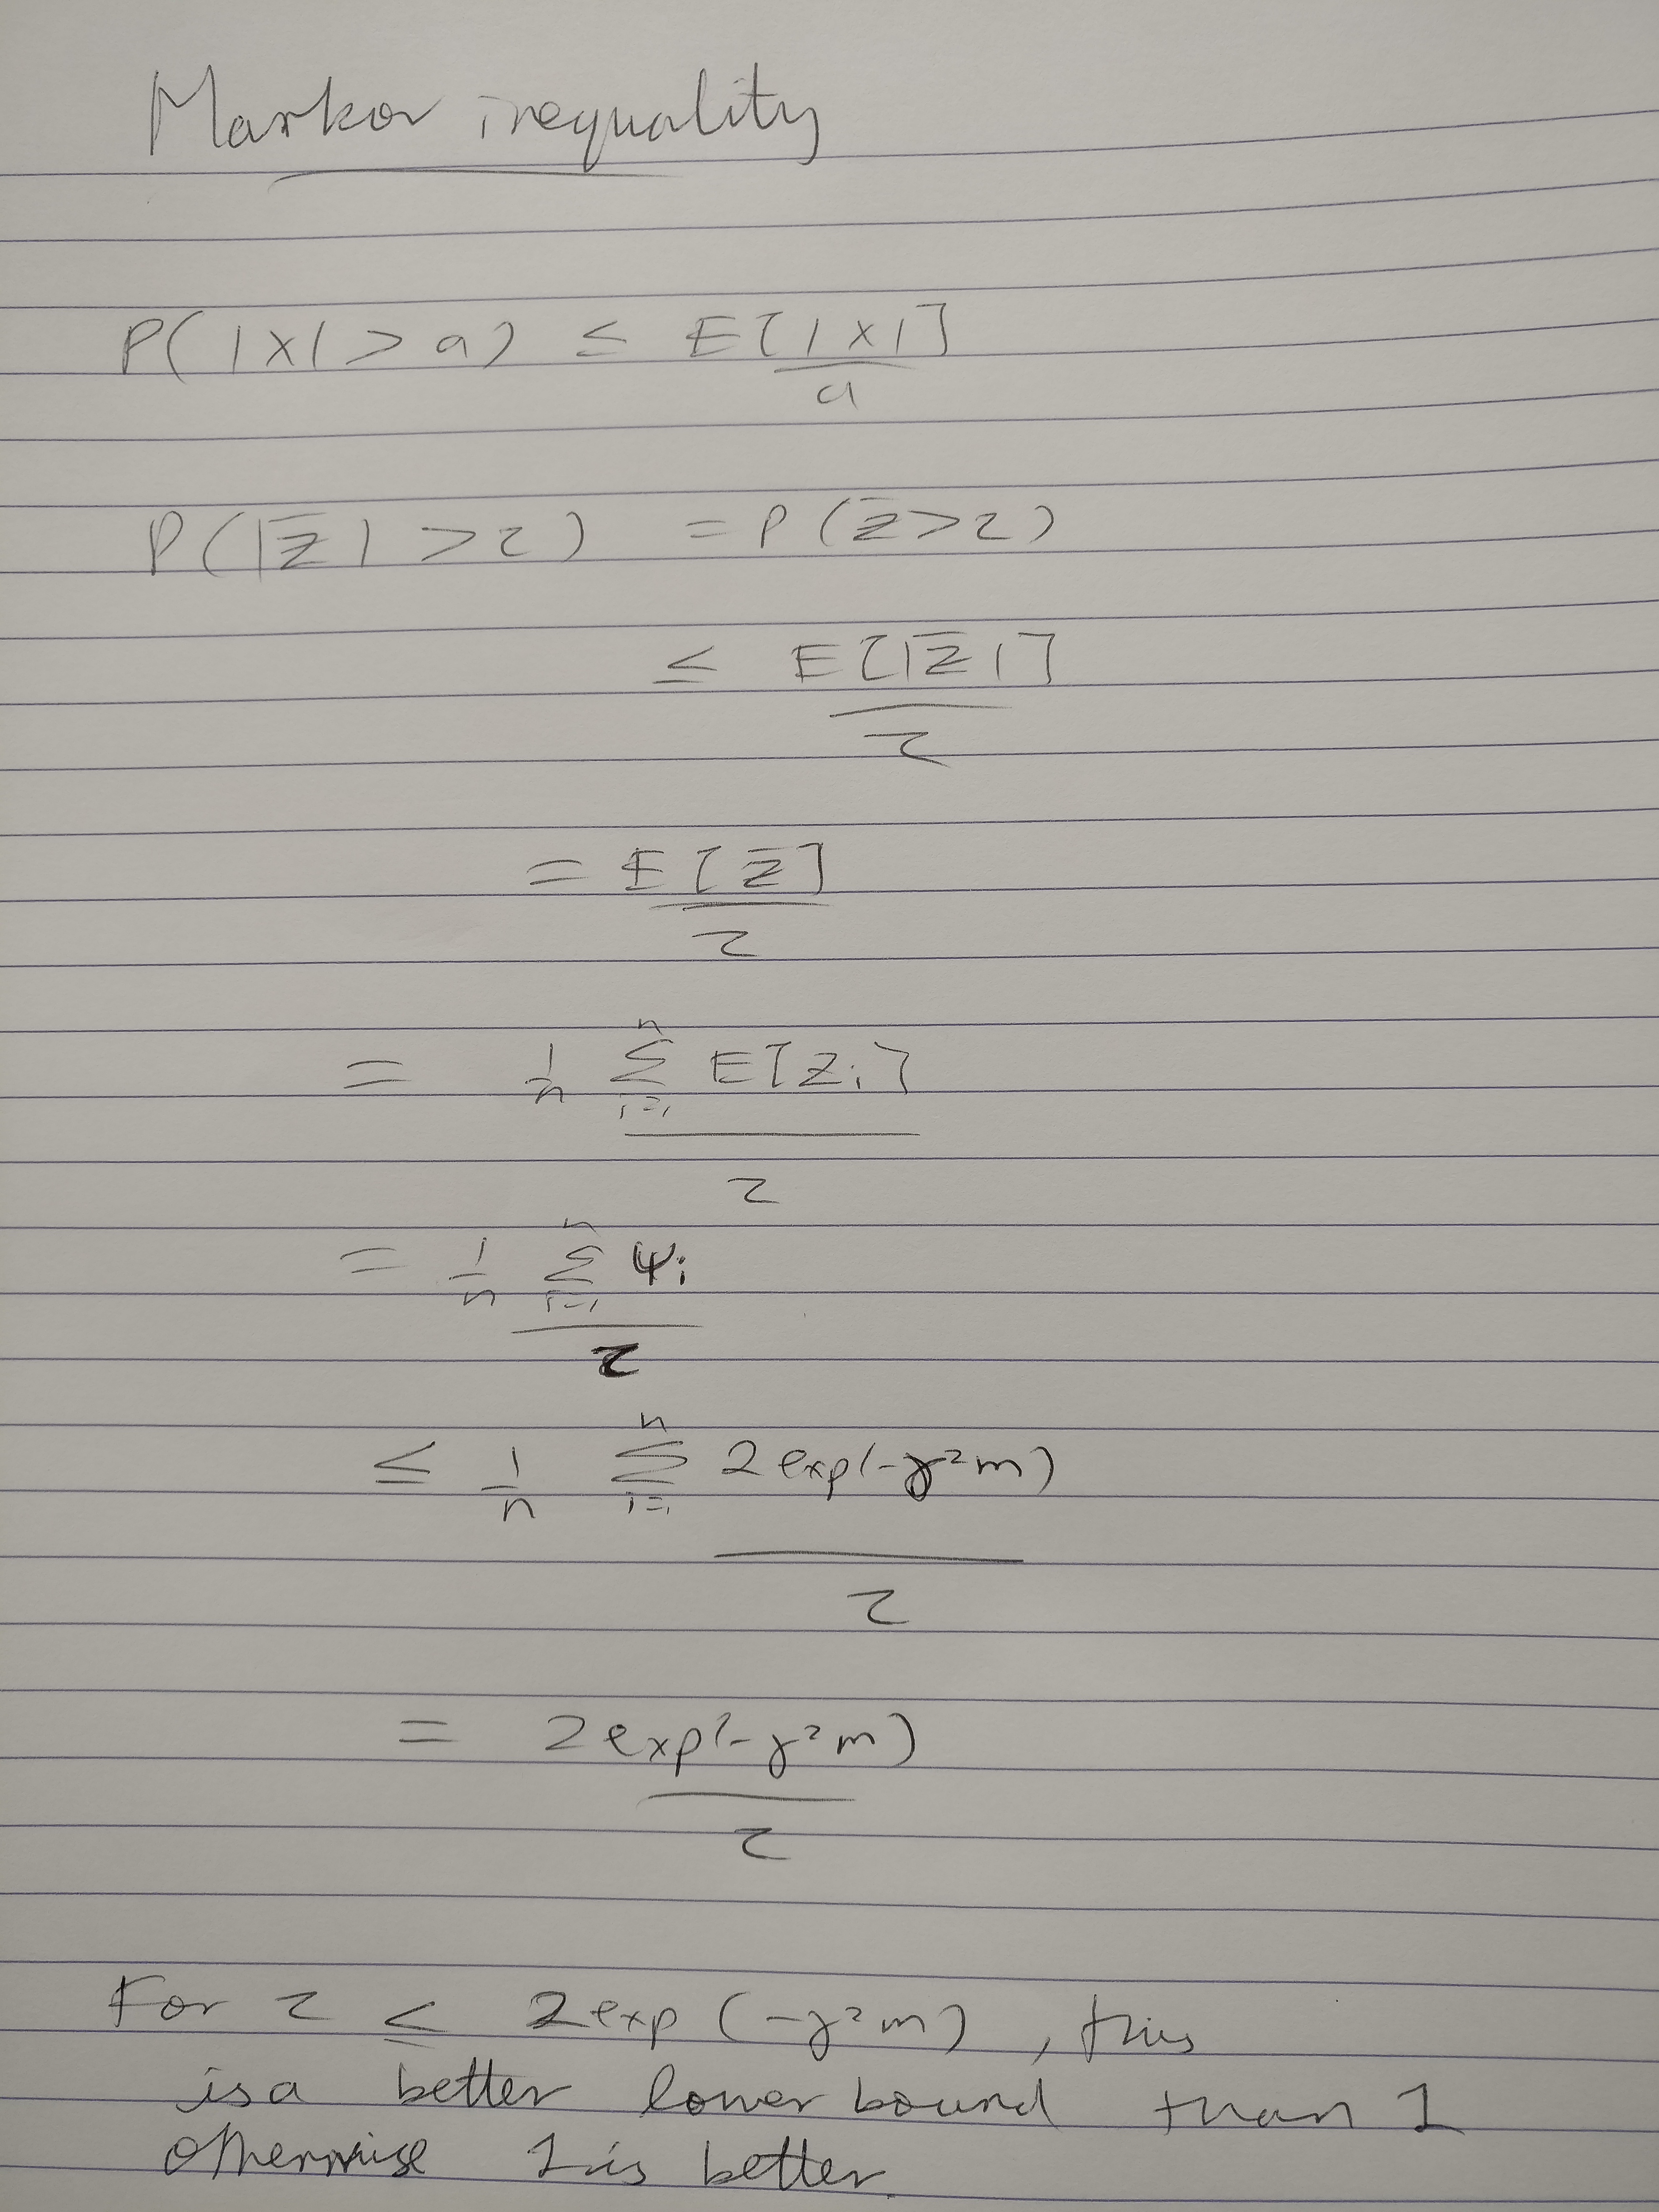 Markov inequality
P(|X| > a) ≤ E[|X|]
a
P(|z̅| > τ) = P(z̅ > τ)
≤ E[|z̅|]
τ
= E[z̅]
τ
= 1/n Σ_{i=1}^{n} E[z_i]
τ
= 1/n Σ_{i=1}^{n} ψ_i
τ
≤ 1/n Σ_{i=1}^{n} 2 exp(-γ²m)
τ
= 2 exp(-γ²m)
τ
For τ ≤ 2 exp (-γ²m), this
is a better lower bound than 1
otherwise 1 is better.